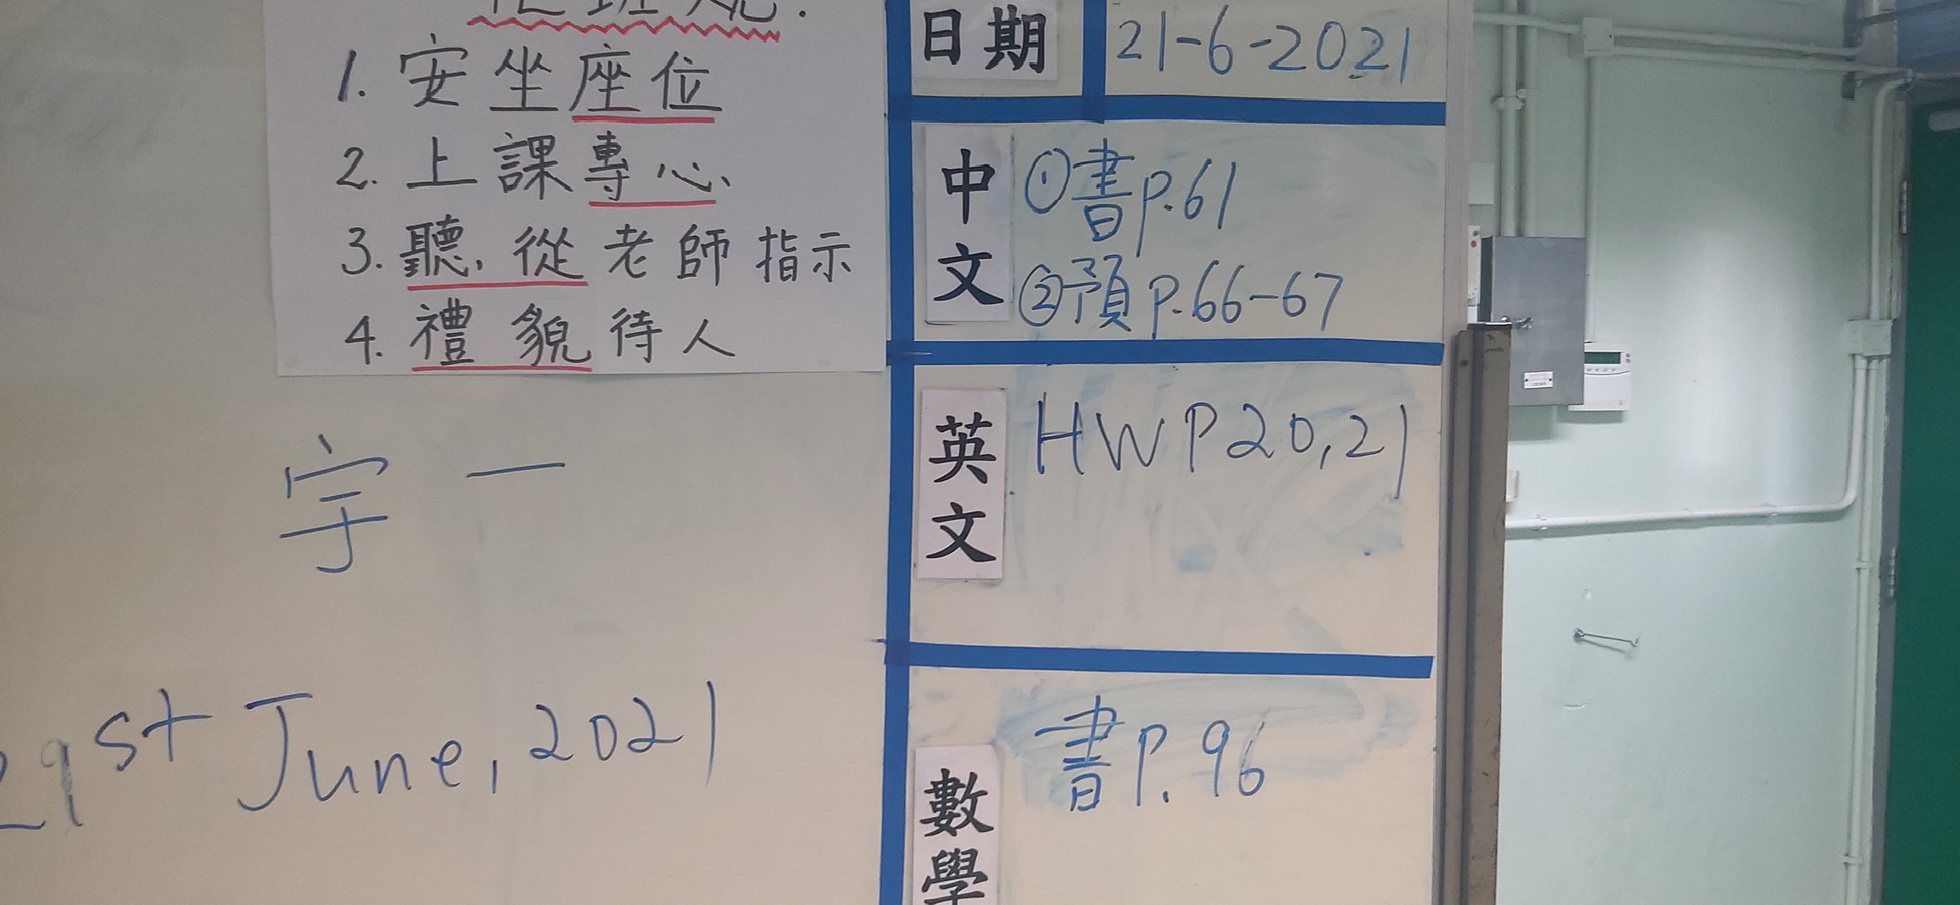 1. 安坐座位
2. 上課專心
3. 聽從老師指示
4. 禮貌待人
宇一
21st June, 2021
日期 21-6-2021
中文 ①書p.61
②預p.66-67
英文 HW P20,21
數學 書P.96